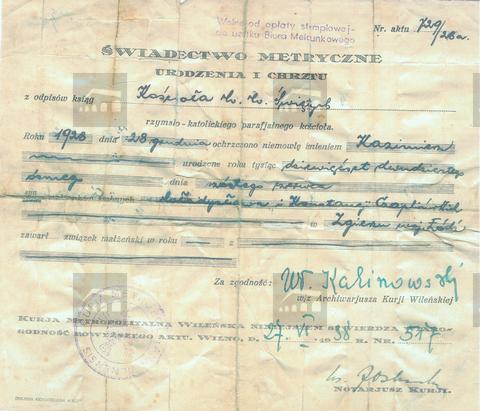 Wolne od opłaty stemplowej-
do użytku Biura Meldunkowego
Nr. aktu 729/28a.
ŚWIADECTWO METRYCZNE
URODZENIA I CHRZTU
z odpisów ksiąg Kościoła W. W. Świętych
rzymsko-katolickiego parafjalnego kościoła.
Roku 1928 dnia 28 grudnia ochrzczono niemowlę imieniem Kazimierz
urodzone roku tysiąc dziewięćset dwudziestego
ósmego dnia czerwca
syn
Władysława i Konstancji Czaplińskich
w Zgierzu woj. Łódź
zawarł związek małżeński w roku — z
Za zgodność: Wł. Kalinowski
w/z Archiwarjusza Kurji Wileńskiej
KURJA METROPOLITALNA WILEŃSKA NINIEJSZEM STWIERDZA WIARO-
GODNOŚĆ POWYŻSZEGO AKTU. WILNO, D. 27. VI 1938 R. NR. 517
NOTARJUSZ KURJI.